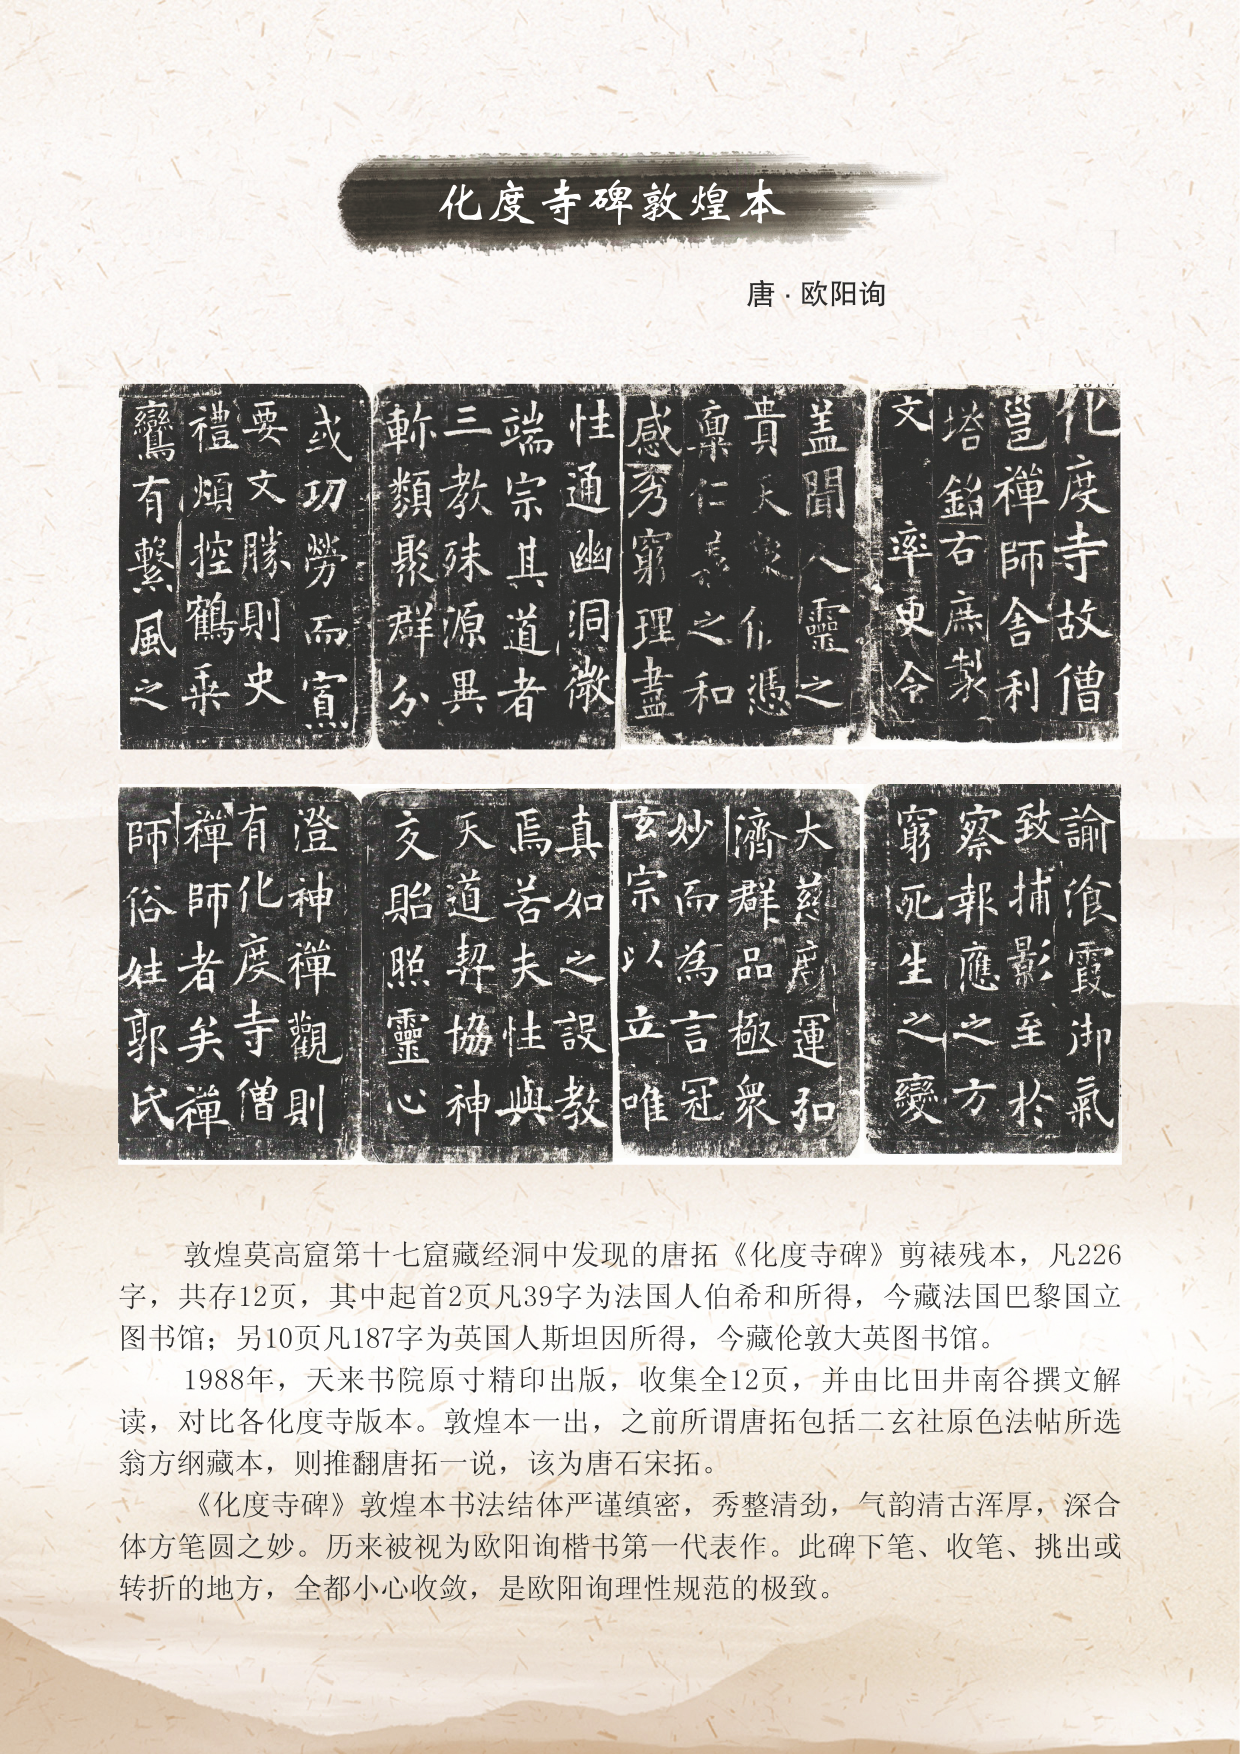 化度寺碑敦煌本
唐·欧阳询
化度寺故僧
邕禪師舎利
塔銘右庶製
文 率更令
蓋聞人靈之
貴天象攸憑
稟仁義之和
感秀窮理盡
性通幽洞微
端宗其道者
三教殊源異
軫類聚群分
或功勞而寡
要文勝則史
禮煩控鶴乗
鸞有繫風之
諭飡霞御氣
致捕影至於
察報應之方
窮死生之變
大慈廣運弘
濟群品極衆
妙而為言冠
玄宗以立唯
真如之設教
焉若夫性與
天道契協神
交貽照靈心
澄神禪觀則
有化度寺僧
禪師者矣禪
師俗姓郭氏
敦煌莫高窟第十七窟藏经洞中发现的唐拓《化度寺碑》剪裱残本，凡226
字，共存12页，其中起首2页凡39字为法国人伯希和所得，今藏法国巴黎国立
图书馆；另10页凡187字为英国人斯坦因所得，今藏伦敦大英图书馆。
1988年，天来书院原寸精印出版，收集全12页，并由比田井南谷撰文解
读，对比各化度寺版本。敦煌本一出，之前所谓唐拓包括二玄社原色法帖所选
翁方纲藏本，则推翻唐拓一说，该为唐石宋拓。
《化度寺碑》敦煌本书法结体严谨缜密，秀整清劲，气韵清古浑厚，深合
体方笔圆之妙。历来被视为欧阳询楷书第一代表作。此碑下笔、收笔、挑出或
转折的地方，全都小心收敛，是欧阳询理性规范的极致。